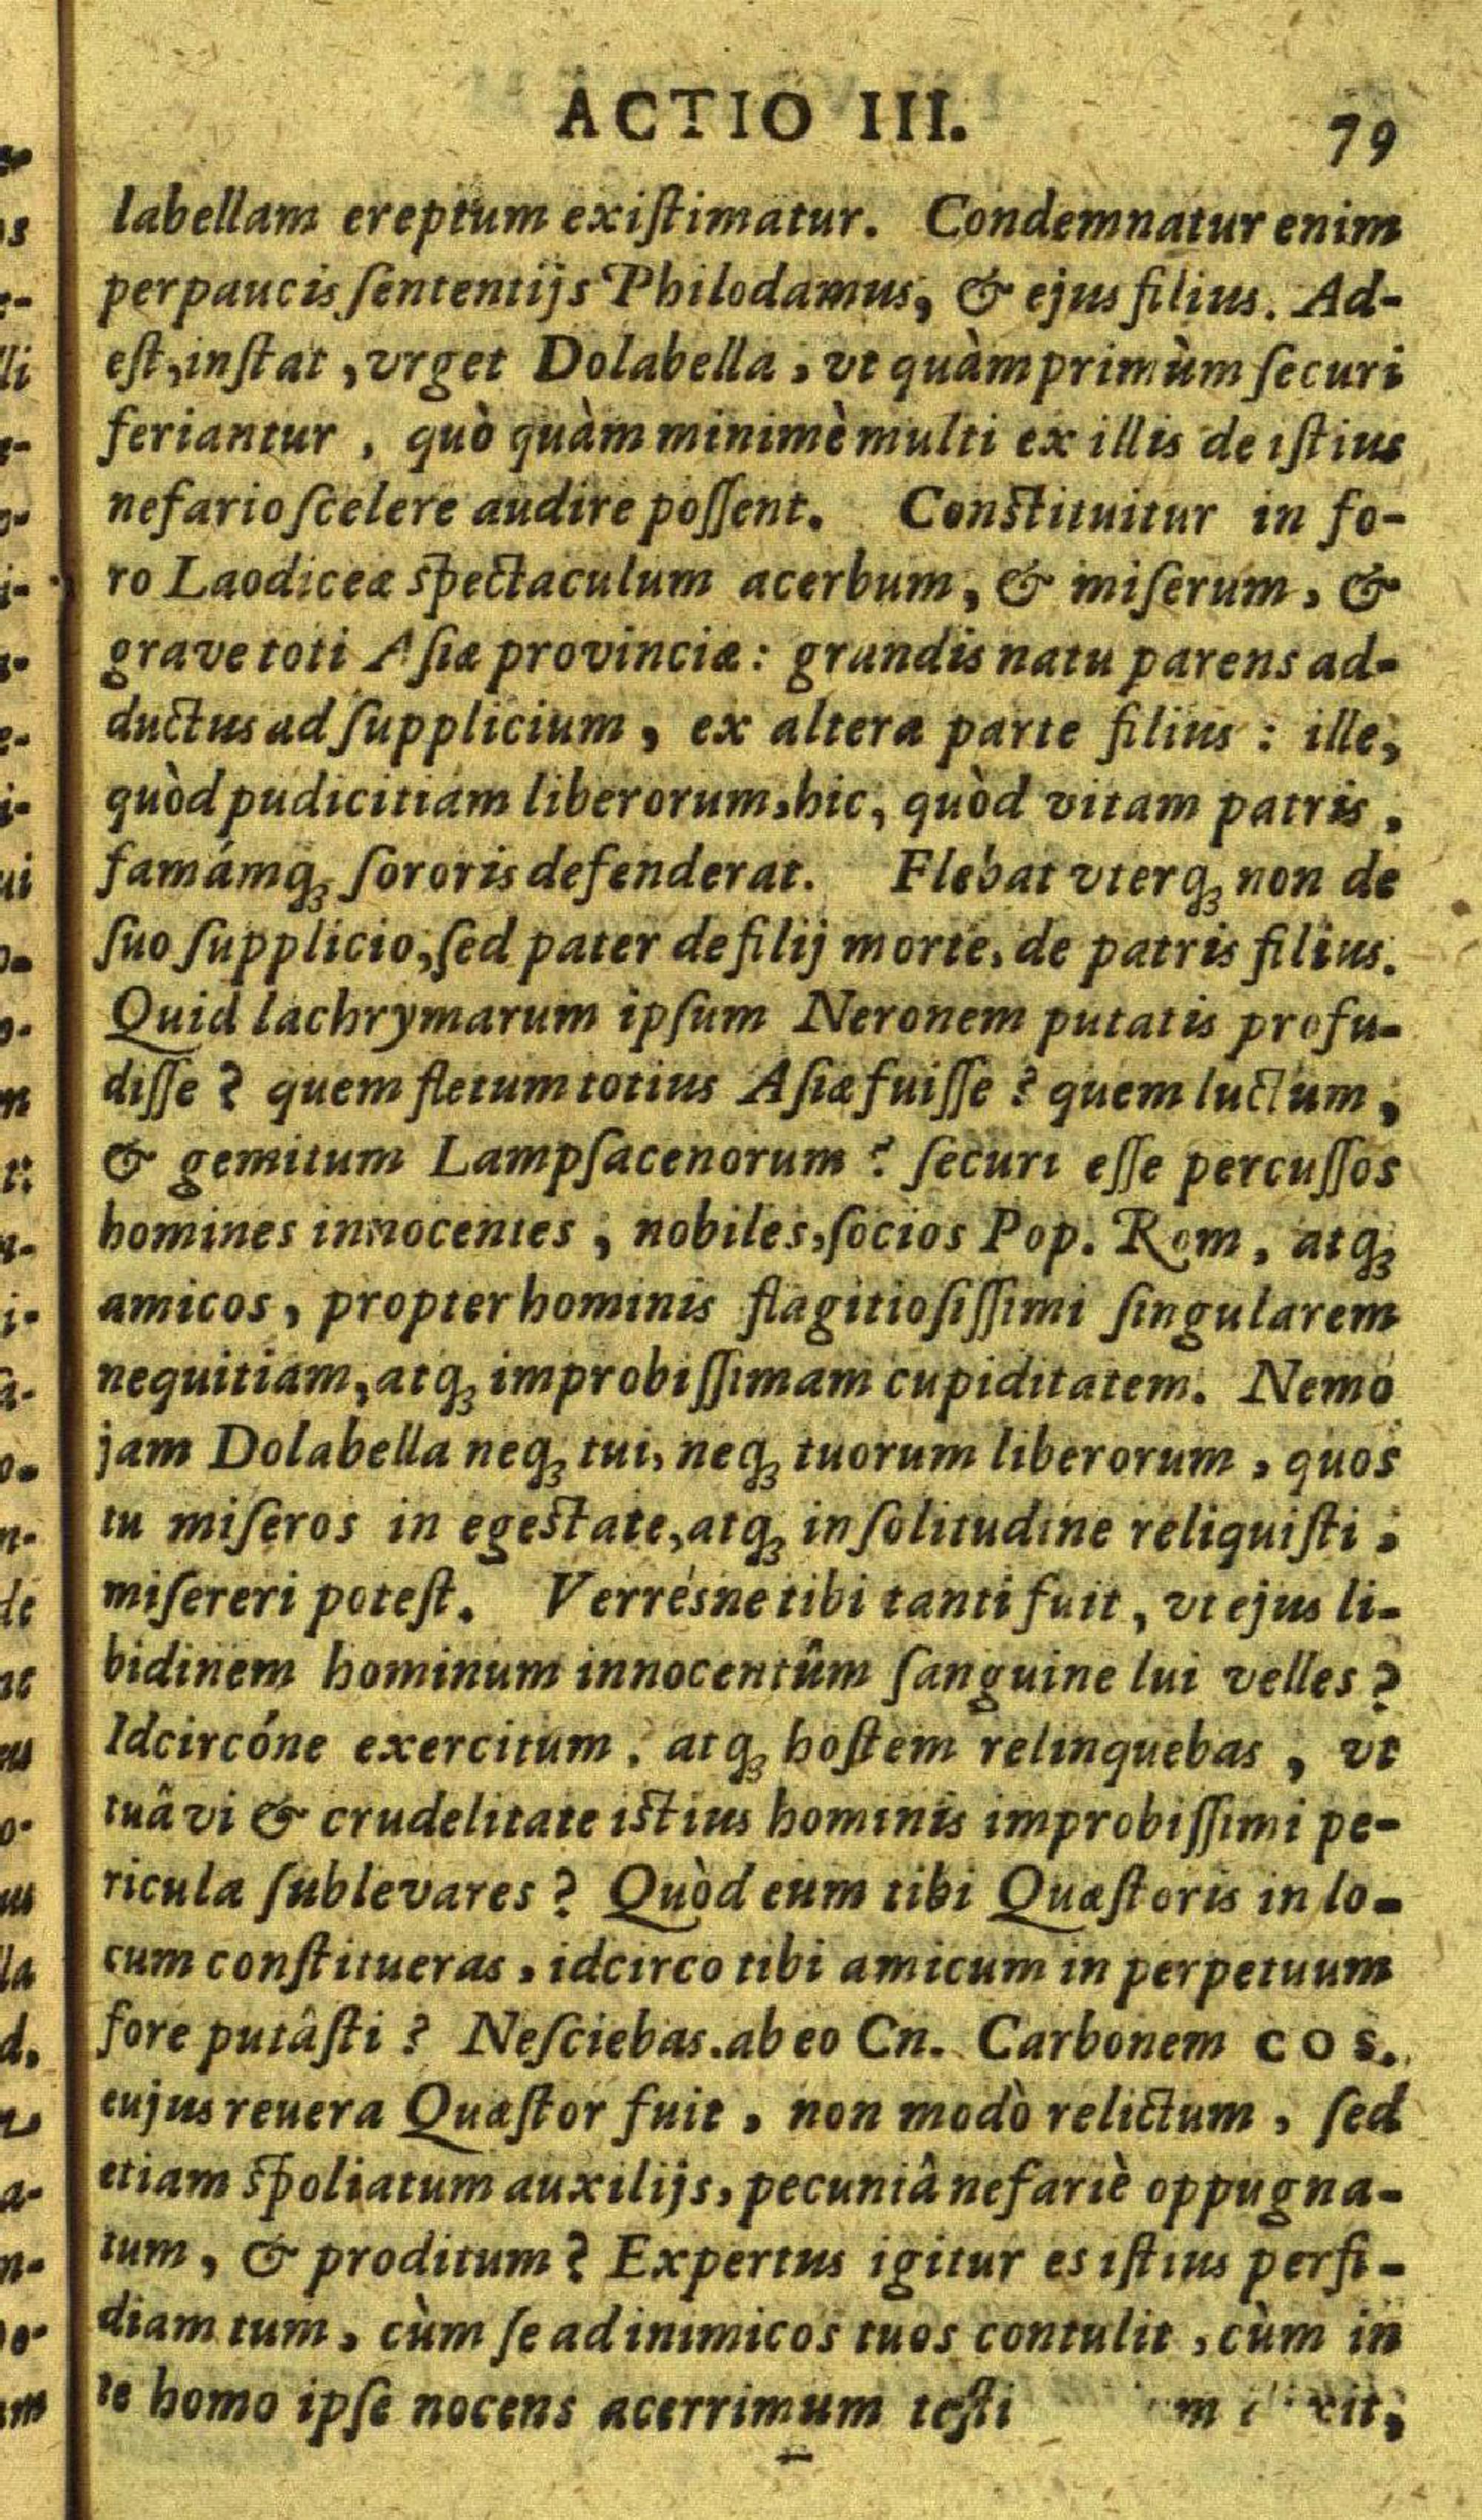 ACTIO III. 79
labellam ereptum exiſtimatur. Condemnatur enim
perpaucis ſententijs Philodamus, & ejus filius. Ad-
eſt, inſtat, vrget Dolabella, vt quàm primùm ſecuri
feriantur, quò quàm minimè multi ex illis de iſtius
nefario ſcelere audire poſſent. Conſtituitur in fo-
ro Laodiceæ ſpectaculum acerbum, & miſerum, &
grave toti Aſiæ provinciæ: grandis natu parens ad-
ductus ad ſupplicium, ex altera parte filius: ille,
quòd pudicitiam liberorum, hic, quòd vitam patris,
famámq; ſororis defenderat. Flebat vterq; non de
ſuo ſupplicio, ſed pater de filij morte, de patris filius.
Quid lachrymarum ipſum Neronem putatis profu-
diſſe? quem fletum totius Aſiæ fuiſſe? quem luctum,
& gemitum Lampſacenorum? ſecuri eſſe percuſſos
homines innocentes, nobiles, ſocios Pop. Rom, atq;
amicos, propter hominis flagitioſiſſimi ſingularem
nequitiam, atq; improbiſſimam cupiditatem. Nemo
jam Dolabella neq; tui, neq; tuorum liberorum, quos
tu miſeros in egeſtate, atq; in ſolitudine reliquiſti,
miſereri poteſt. Verrésne tibi tanti fuit, vt ejus li-
bidinem hominum innocentûm ſanguine lui velles?
Idcircóne exercitum, atq; hoſtem relinquebas, vt
tuâ vi & crudelitate iſtius hominis improbiſſimi pe-
ricula ſublevares? Quòd eum tibi Quæſtoris in lo-
cum conſtitueras, idcirco tibi amicum in perpetuum
fore putâſti? Neſciebas. ab eo Cn. Carbonem COS.
cujus reuera Quæſtor fuit, non modò relictum, ſed
etiam ſpoliatum auxilijs, pecuniâ nefariè oppugna-
tum, & proditum? Expertus igitur es iſtius perfi-
diam tum, cùm ſe ad inimicos tuos contulit, cùm in
te homo ipſe nocens acerrimum